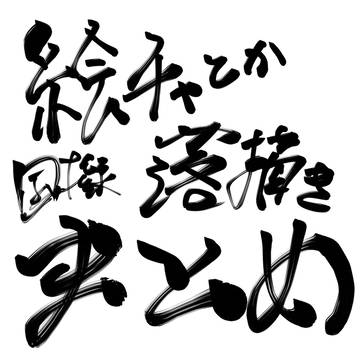 絵チャとか
落描き
まとめ